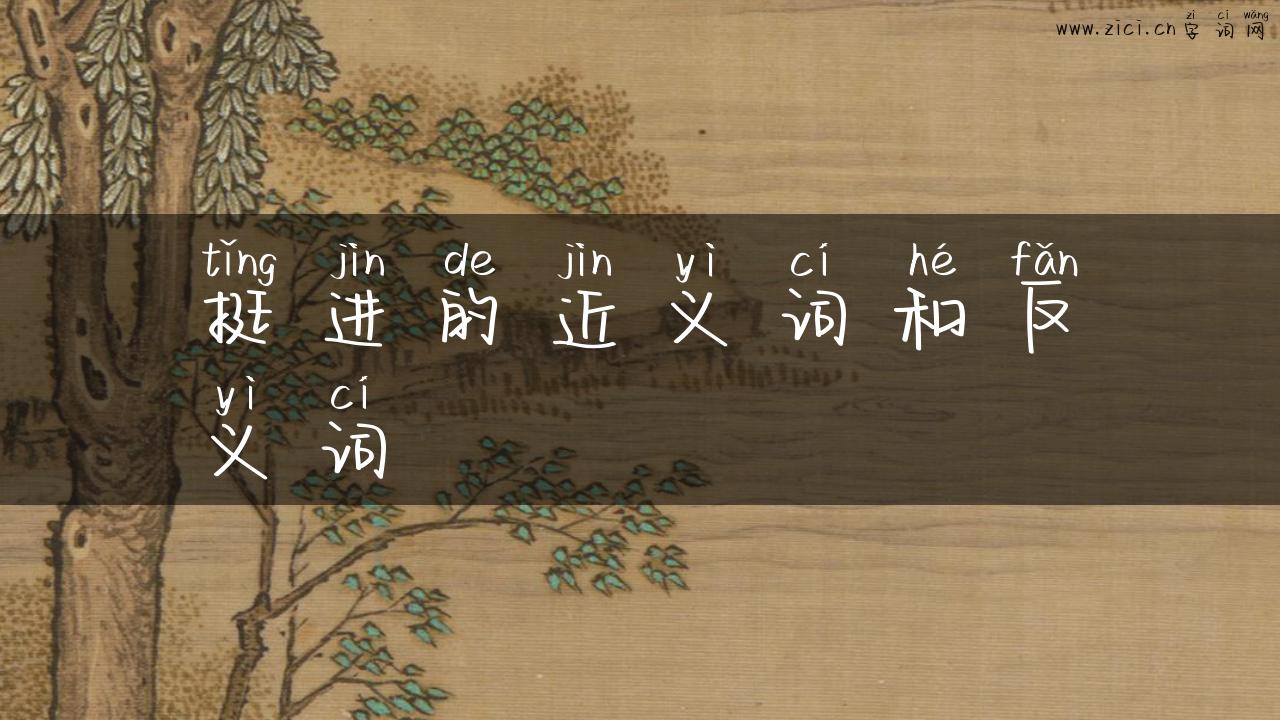 www.zici.cn 字词网
zì cí wǎng
tǐng jìn de jìn yì cí hé fǎn
挺进的近义词和反
yì cí
义词